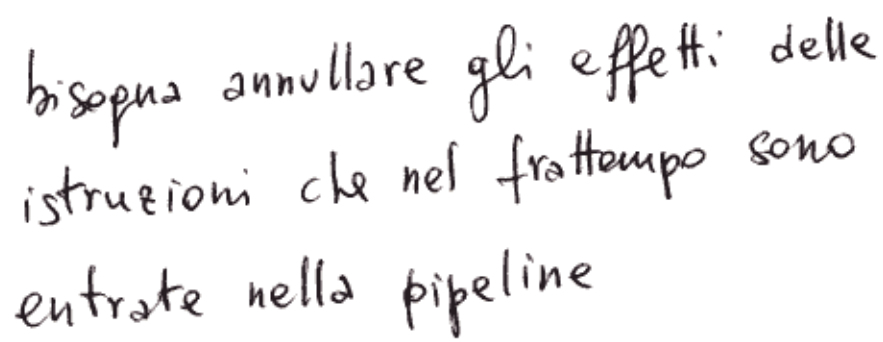 bisogna annullare gli effetti delle
istruzioni che nel frattempo sono
entrate nella pipeline